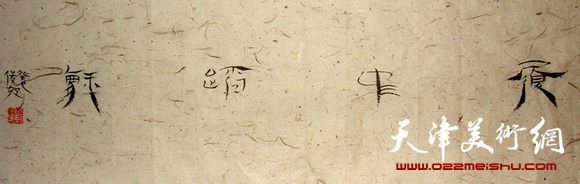 履中蹈龢
天津美術網
www.022meishu.com